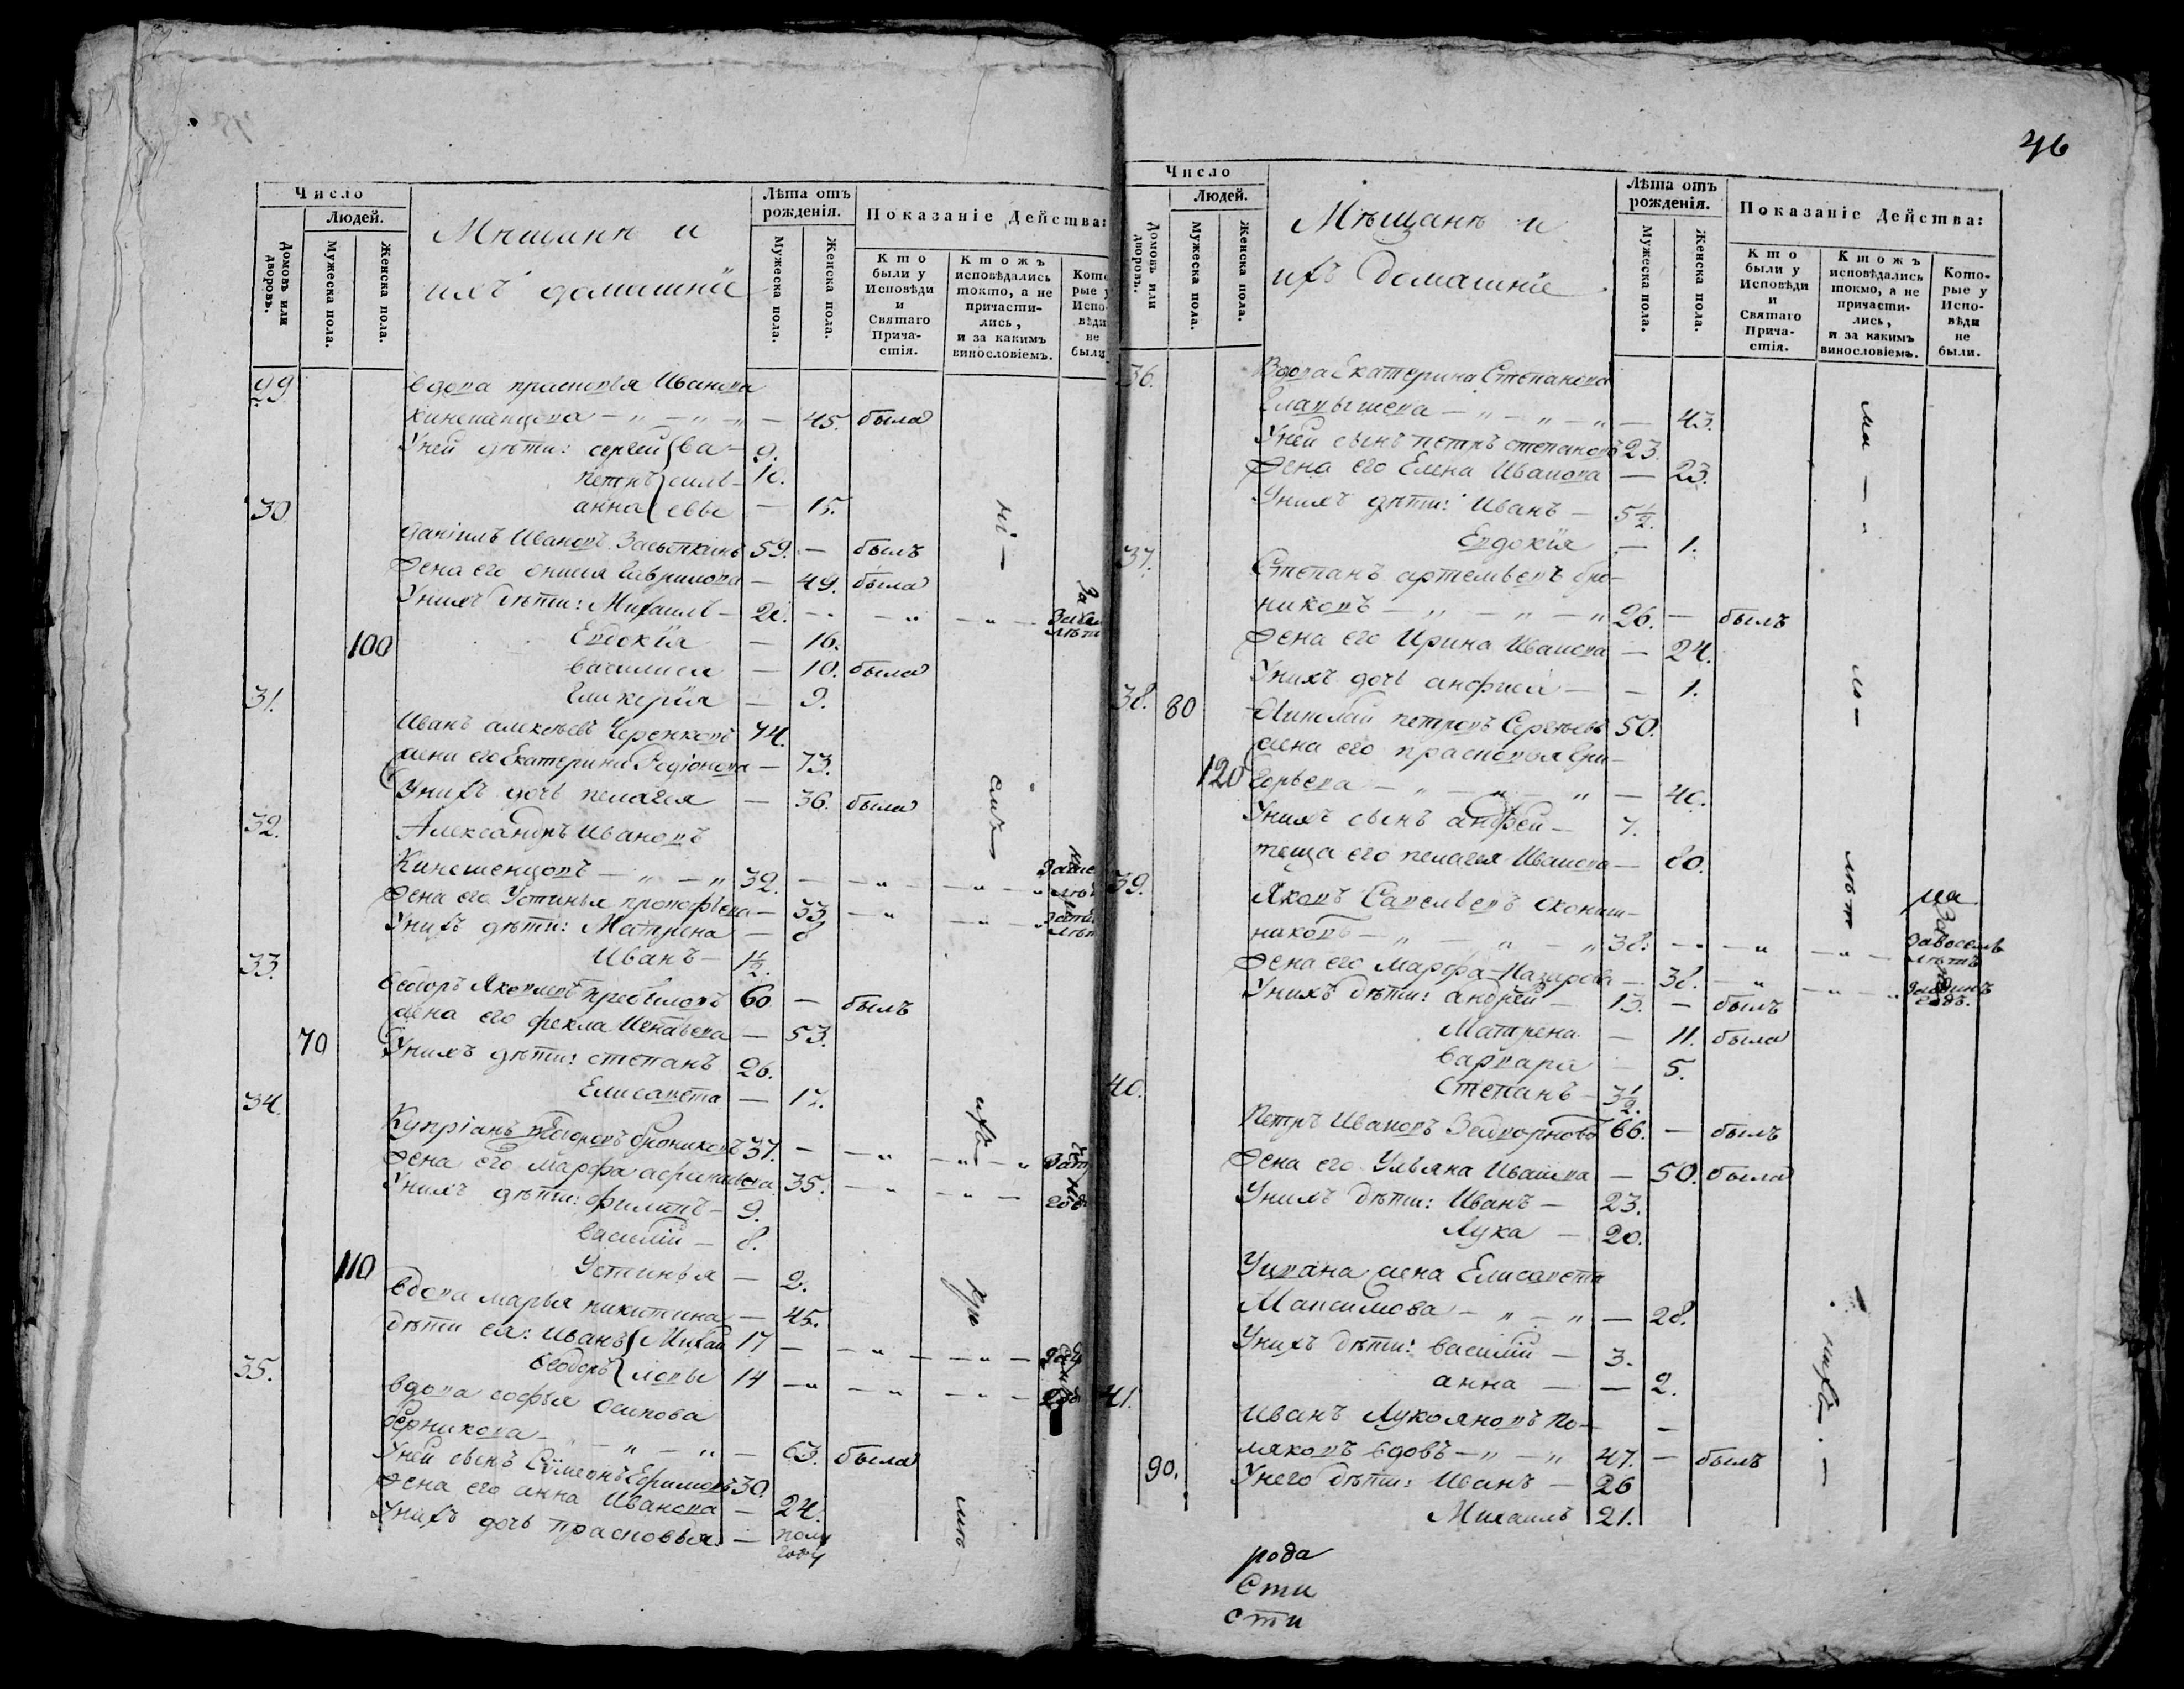 46
Число
Людей.
Домовъ или дворовъ.
Мужеска пола.
Женска пола.
Мещанѣ и
ихъ домашніе
Лѣта отъ рожденія.
Мужеска пола.
Женска пола.
Показаніе Действа:
Кто были у Исповѣди и Святаго Причастія.
Ктожъ исповѣдались токмо, а не причастились, и за какимъ винословіемъ.
Которые у Исповѣди не были.
29 Вдова прасковья Иванова
Кинешенцова — „ — „ — „ — 45. была
У ней дѣти: сергей 9.
петръ 10.
анна — 15.
30
Даніилъ Ивановъ 59. — былъ
Жена его Гаврилова — 49. была
У нихъ дѣти: Михаилъ — 20. — — „ — „ —
100 Евдокія — 16.
Василиса — 10. была
Гликерія — 9.
31.
Иванъ алексѣевъ Черенковъ 74.
жена его Екатерина Родіонова — 73.
У нихъ дочь пелагея — 36. была
32. Александръ Ивановъ
Кинешенцовъ — „ — „ 32. — — „ — „
Жена его Устинья — 33 — „ — „
У нихъ дѣти: Матрена — 8
Иванъ — 1½.
33.
Ѳеодоръ Яковлевъ 60 — былъ
жена его фекла Игнатьева — 53.
70 У нихъ дѣти: степанъ 26.
Елисавета — 17.
34.
Купріанъ 37. — — „ — „ — „
Жена его марфа 35. — „ — „ —
У нихъ дѣти: филипъ — 9.
василій — 8.
110 Устинья — 2.
Вдова марья никитина — 45.
дѣти ея: иванъ 17 — — „ — „ —
Ѳеодоръ 14 — „ — „ — „ —
35.
Вдова софья Осипова
— „ — „ — 63. была
У ней сынъ Сѵмеонъ Ефимовъ 30.
Жена его анна Иванова — 24.
У нихъ дочь прасковья — полу году
Число
Людей.
Домовъ или дворовъ.
Мужеска пола.
Женска пола.
Мѣщанѣ и
ихъ домашніе
Лѣта отъ рожденія.
Мужеска пола.
Женска пола.
Показаніе Действа:
Кто были у Исповѣди и Святаго Причастія.
Ктожъ исповѣдались токмо, а не причастились, и за какимъ винословіемъ.
Которые у Исповѣди не были.
36. Вдова Екатерина Степанова
— „ — „ — „ — 43.
У ней сынъ петръ степановъ 23.
Жена его Елена Иванова — 23.
У нихъ дѣти: Иванъ — 5½.
Евдокія — 1.
37.
Степанъ артемьевъ бро-
никовъ — „ — „ — „ 26. — былъ
Жена его Ирина Иванова — 24.
У нихъ дочь анфиса — — 1.
38. 80
Николай петровъ Сергѣевъ 50.
жена его прасковья Гри-
120 горьева — „ — „ — „ — 40.
У нихъ сынъ андрей — 7.
теща его пелагея Иванова — 80.
39.
Яковъ Савельевъ
— „ — „ — „ 38. — — „ — „ — За восемь лѣтъ
Жена его Марфа Назарова — 38. — „ — „ — „ За одинъ годъ.
У нихъ дѣти: андрей — 13. — былъ
Матрена — 11. была
Варвара — 5.
40. Степанъ — 3½.
Петръ Ивановъ 66. — былъ
Жена его Ульяна Иванова — 50. была
У нихъ дѣти: Иванъ — 23.
Лука — 20.
У ивана жена Елисавета
Максимова — „ — „ — 28.
У нихъ дѣти: василій — 3.
анна — — 2.
41.
Иванъ Лукояновъ По-
ляковъ вдовъ — „ — „ 47. — былъ
90. У него дѣти: Иванъ — 26
Михаилъ 21.
рода
Сти
сти